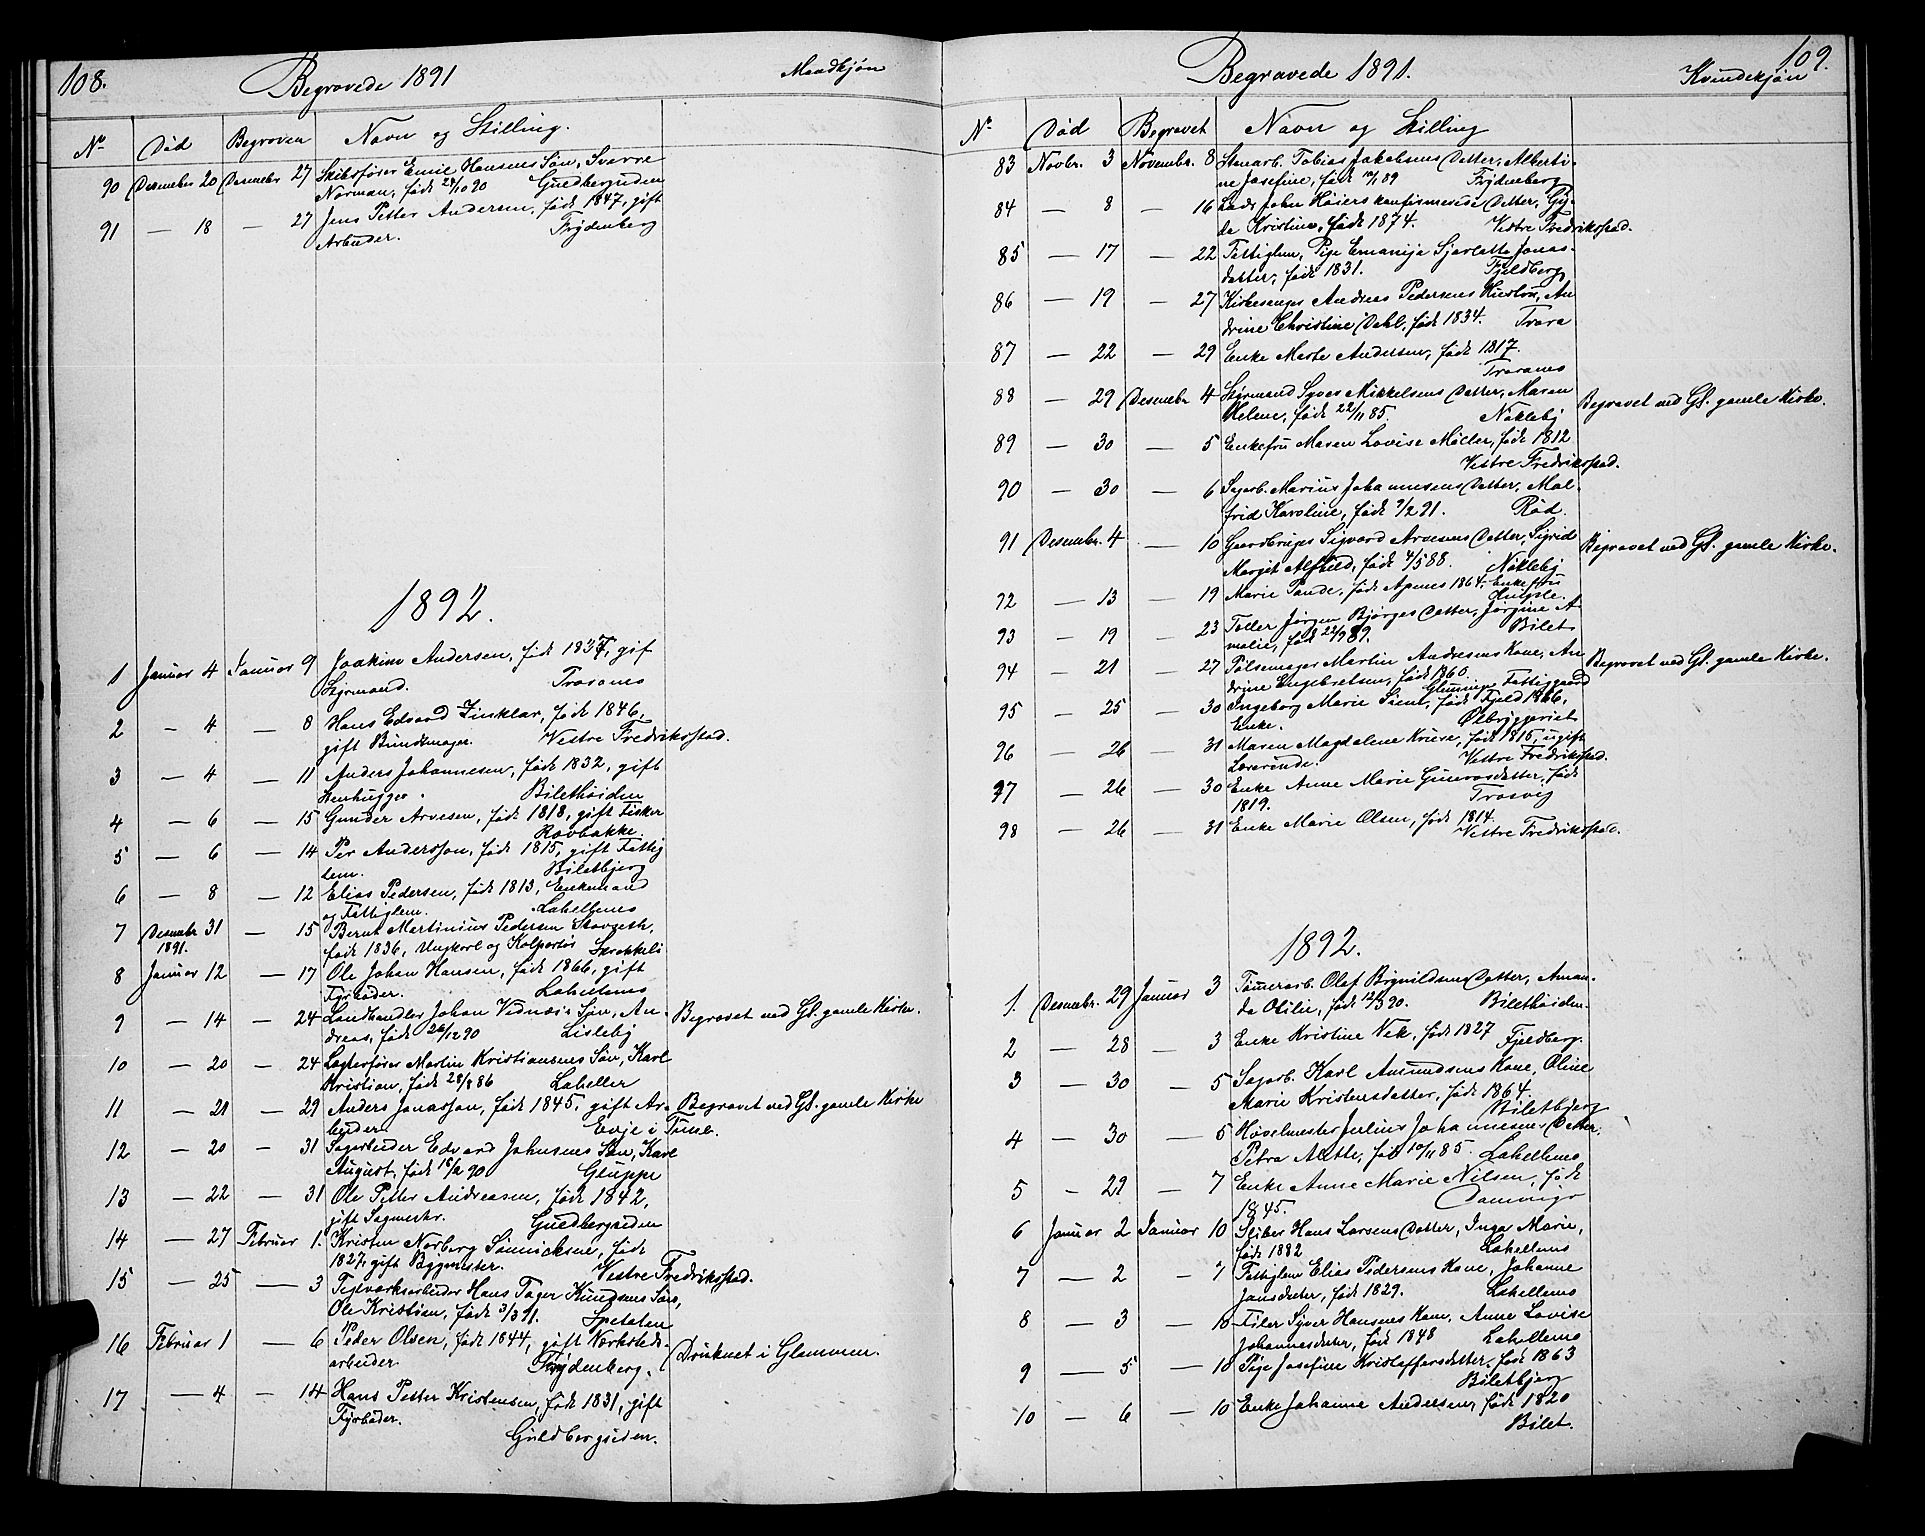 108. Begravede 1891 Mandkjøn
No Død Begraven Navn og Stilling.
90 Desember 20 Desember 27 Skibsfører Emil Hansens Søn, Sverre
Norman, født 28/10 90 Guldbergsiden
91 — 18 — 27 Jens Petter Andersen, født 1847, gift
Arbeider. Frydenberg
1892.
1 Januar 4 Januar 9 Joakim Andersen, født 1837, gif
Styrmand. Trosnes
2 — 4 — 8 Hans Edvard Zinklar, født 1846,
gift Bundtmager. Vestre Fredriksstad.
3 — 4 — 11 Anders Johannesen, født 1832, gift
Stenhugger. Bilethøiden
4 — 6 — 15 Gunder Arvesen, født 1818, gift Fisker
Ravbakke.
5 — 6 — 14 Per Andersson, født 1815, gift Fattig
lem. Biletbjerg
6 — 8 — 12 Elias Pedersen, født 1813, Enkemand
og Fattiglem. Lahellemo
7 Desember 31 — 15 Bernt Martinius Pedersen
1891. født 1836, Ungkarl og Kolportør
8 Januar 12 — 17 Ole Johan Hansen, født 1866, gift
Fyrbøder. Lahellemo
9 — 14 — 24 Landhandler Johan Vednæs's Søn, An- Begravet ved Gl. gamle Kirke.
dreas, født 26/12 90 Lisleby
10 — 20 — 24 Lagerfører Martin Kristiansens Søn, Karl
Kristian, født 28/8 86 Laheller
11 — 21 — 29 Anders Jonasson, født 1845, gift Ar- Begravet ved Gl. gamle Kirke
beider. Evje i Tune.
12 — 20 — 31 Sagarbeider Edvard Johnsens Søn, Karl
August, født 90 Gluppe
13 — 22 — 31 Ole Petter Andreasen, født 1842,
gift Sagmester. Guldbergsiden
14 — 27 Februar 1. Kristen Norberg født
1827, gift Bygmester. Vestre Fredriksstad.
15 — 25 — 3 Teglverksarbeider Hans Tager Knudsens Søn,
Ole Kristian, født 3/3 91. Spetalen
16 Februar 1 — 6 Peder Olsen, født 1844, gift Værksteds- Druknet i Glommen.
arbeider. Frydenberg.
17 — 4 — 14 Hans Petter Kristensen, født 1831, gift
Fyrbøder.
Guldbergsiden.
Begravede 1891. Kvindekjøn 109.
No Død Begravet Navn og Stilling
83 Novbr. 3 Novembr. 8 Stenarb. Tobias Jakobsens Datter, Alberti-
ne Josefine, født 10/1 89 Frydenberg
84 — 8 — 16 Lods John Høiers konfirmerede Datter, Gy-
da Kristine, født 1874. Vestre Fredriksstad.
85 — 17 — 22 Fattiglem, Pige Emanija Sjarlotta Jonas-
datter, født 1831. Fjeldberg
86 — 19 — 27 Kirkesanger Andreas Pedersens Hustru, An
drine Christine Dahl, født 1834. Trara
87 — 22 — 29 Enke Marte Andersen, født 1817.
Traranes
88 — 29 Desember 4 Styrmand Syver Mikkelsens Datter, Maren Begravet ved Gl. gamle Kirke.
Helene, født 22/11 85. Nøkleby
89 — 30 — 5 Enkefru Maren Lovise Møller, født 1812
Vestre Fredriksstad.
90 — 30 — 6 Sagarb. Marius Johannesens Datter, Mal-
frid Karoline, født 9/2 91. Rød.
91 Desembr. 4 — 10 Gaardbruger Sigvard Arvesens Datter, Sigrid Begravet ved Gl. gamle Kirke.
Margit Alfhild, født 4/5 88. Nøkleby
92 — 13 — 19 Marie Tande, født Apenes 1864, Enkefru
93 — 19 — 23 Toller Jørgen Bjørges Datter, Jørgine A-
malie, født 22/9 89. Bilet
94 — 21 — 27 Pølsemager Martin Andresens Kone, An Begravet ved Gl. gamle Kirke.
drine Engebretsen, født 1860.
Glemminge Fattiggaard
95 — 25 — 30 Ingeborg Marie født Fjeld 1866,
Enke. Ølbryggeriet
96 — 26 — 31 Maren Magdalene Kruse, født 1815, ugift
Lærerinde. Vestre Fredriksstad.
97 — 26 — 30 Enke Anne Marie Gunersdatter, født
1819. Trosvig
98 — 26 — 31 Enke Marie Olsen, født 1814.
Vestre Fredriksstad.
1892.
1. Desembr. 29 Januar 3 Tømmerarb. Olaf Bignildsens Datter, Aman-
da Otilie, født 12/3 90. Bilethøiden.
2 — 28 — 3 Enke Kristine Nek, født 1827
Fjeldberg.
3 — 30 — 5 Sagarb. Karl Amundsens Kone, Oline
Marie Kristensdatter, født 1864.
Biletbjerg
4 — 30 — 5 Høvelmester Julius Johannesens Datter
Petra Alette, født 10/11 85. Lahellemo
5 — 29 — 7 Enke Anne Marie Nilsen, født
1845.
6 Januar 2 Januar 10 Sliber Hans Larsens Datter, Inga Marie,
født 1882 Lahellemo
7 — 2 — 7 Fattiglem Elias Pedersens Kone, Johanne
Jansdatter, født 1829. Lahellemo
8 — 3 — 10 Filer Syver Hansens Kone, Anne Lovise
Johannesdatter, født 1848 Lahellemo
9 — 5 — 10 Pige Josefine Kristoffersdatter, født 1863
Biletbjerg
10 — 6 — 10 Enke Johanne Andersen, født 1820
Bilet.